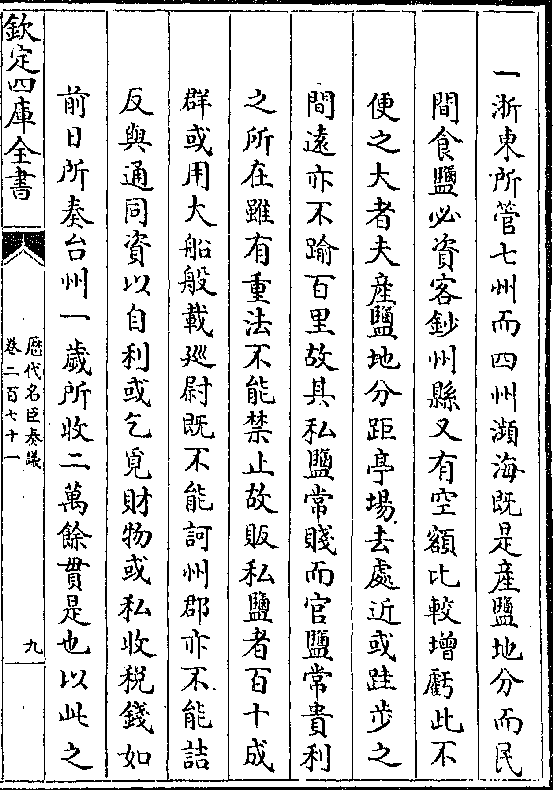 一浙東所管七州而四州瀕海既是產鹽地分而民
間食鹽必資客鈔州縣又有空額比較增虧此不
便之大者夫產鹽地分距亭場去處近或跬步之
間遠亦不踰百里故其私鹽常賤而官鹽常貴利
之所在雖有重法不能禁止故販私鹽者百十成
群或用大船般載廵尉既不能訶州郡亦不能詰
反與通同資以自利或乞覔財物或私收税錢如
前日所奏台州一歲所收二萬餘貫是也以此之
欽定四庫全書
歷代名臣奏議
卷二百七十一
九